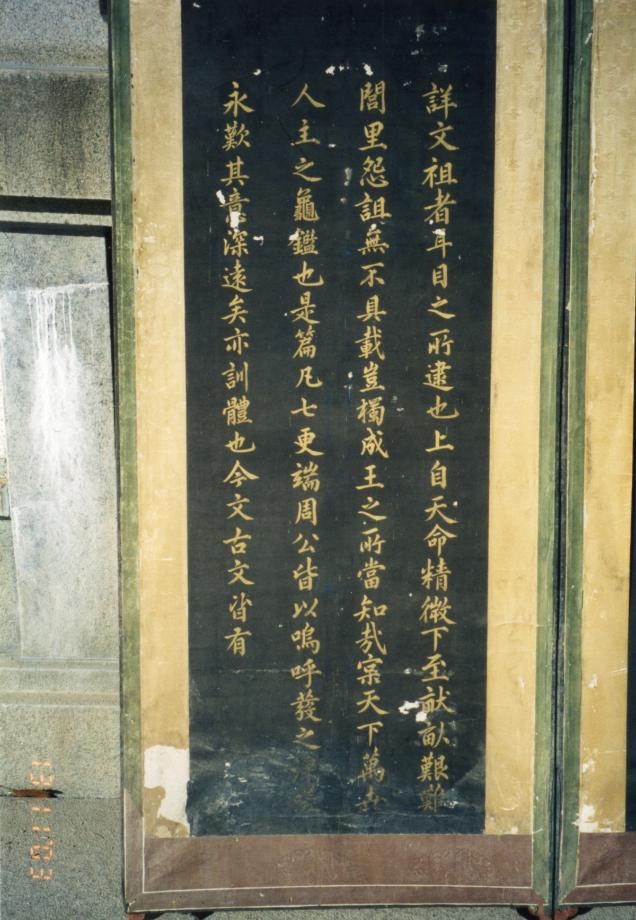 詳文祖者耳目之所逮也上自天命精微下至畎畝艱難
閭里怨詛無不具載豈獨成王之所當知哉實天下萬世
人主之龜鑑也是篇凡七更端周公皆以嗚呼發之深嗟
永歎其意深遠矣亦訓體也今文古文皆有
13 11 '03